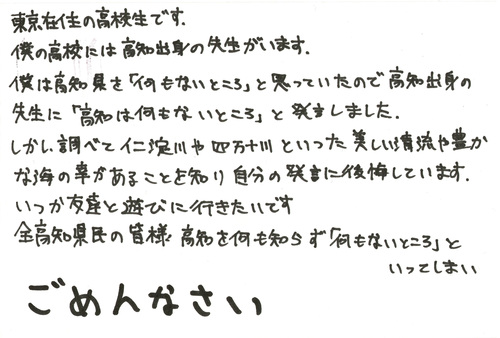 東京在住の高校生です.
僕の高校には高知出身の先生がいます.
僕は高知県を「何もないところ」と思っていたので高知出身の
先生に「高知は何もないところ」と発言しました.
しかし調べて仁淀川や四万十川といった美しい清流や豊か
な海の幸があることを知り自分の発言に後悔しています.
いつか友達と遊びに行きたいです
全高知県民の皆様 高知を何も知らず「何もないところ」と
いってしまい
ごめんなさい